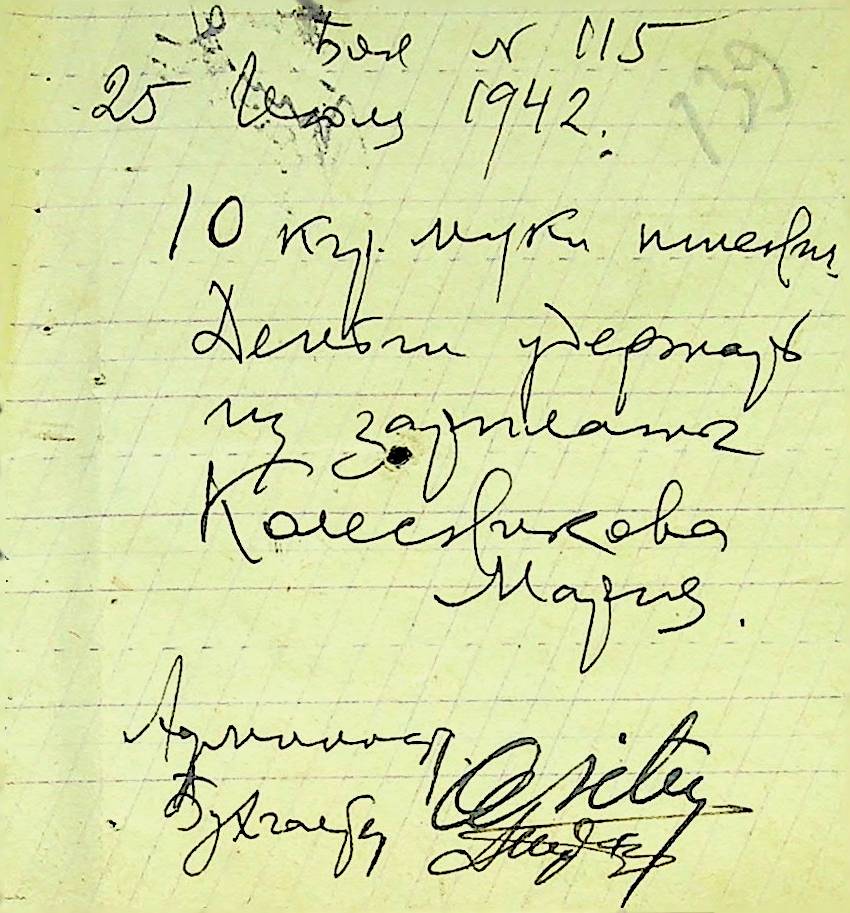 Бон N 115
139
25 Июля 1942.
10 кгр. муки пшенич.
Деньги удержать
из зарплаты
Колесникова
Мария.
Администр.
Бухгалтер